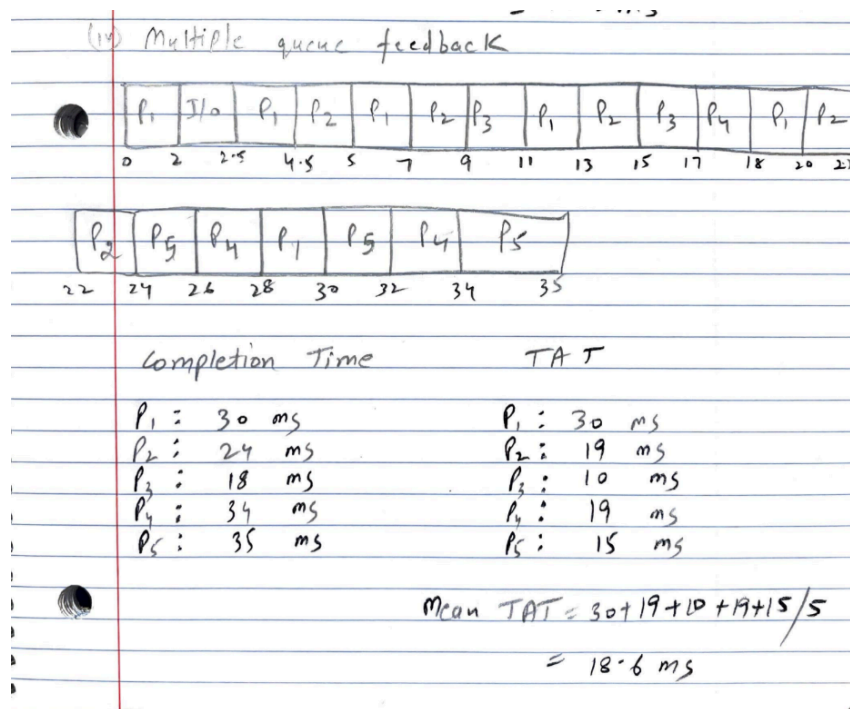 (iv) Multiple queue feedback
P₁ I/o P₁ P₂ P₁ P₂ P₃ P₁ P₂ P₃ P₄ P₁ P₂
0 2 2.5 4.5 5 7 9 11 13 15 17 18 20
P₂ P₅ P₄ P₁ P₅ P₄ P₅
22 24 26 28 30 32 34 35
Completion Time TAT
P₁ : 30 ms P₁ : 30 ms
P₂ : 24 ms P₂ : 19 ms
P₃ : 18 ms P₃ : 10 ms
P₄ : 34 ms P₄ : 19 ms
P₅ : 35 ms P₅ : 15 ms
Mean TAT = 30+19+10+19+15/5
= 18.6 ms